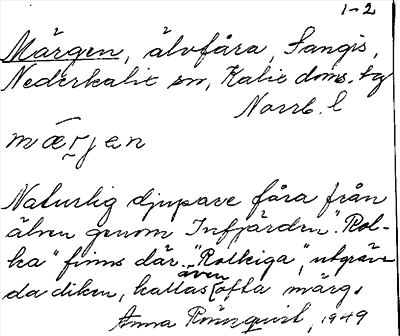 1-2
Märgen, älvfåra, Sangis,
Nederkalix sn, Kalix doms. tg
Norrb. l
mær̭jen
Naturlig djupare fåra från
älven genom Infjärden. "Rol-
ka" finns där. "Rolkiga", utgräv-
da diken, kallas även ofta märg.
Anna Rönnqvist, 1949